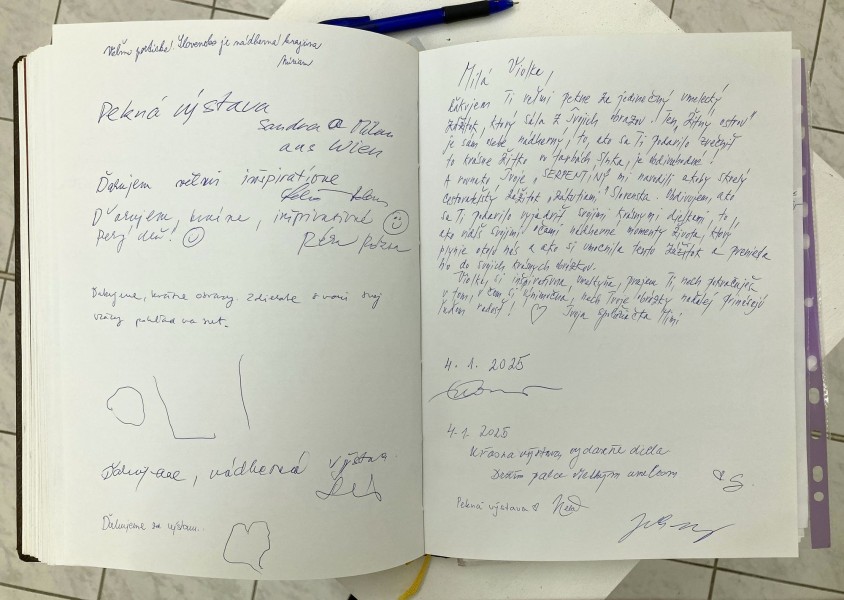 Veľmi poetické. Slovensko je nádherná krajina
Miriam
Pekná výstava
Sandra a Milan
aus Wien
Ďakujem veľmi inšpiratívne
Ďakujem, krásne, inšpiratívne
Pekný deň!
Ďakujeme, krásne obrazy. Zdieľate s nami svoj
vzácny pohľad na svet.
OLI
Ďakujeme, nádherná výstava
Ďakujeme za výstavu.
Milá Violka,
ďakujem Ti veľmi pekne za jedinečný umelecký
zážitok, ktorý sála z Tvojich obrazov. Ten "Žitný ostrov"
je sám o sebe nádherný, to, ako sa Ti podarilo zvečniť
to krásne žitko vo farbách slnka, je obdivuhodné!
A rovnako Tvoje "SERPENTÍNY" mi navodili akoby skvelý
cestovateľský zážitok "zákutiami" Slovenska. Obdivujem, ako
sa Ti podarilo vyjadriť svojimi krásnymi dielkami, to
ako vidíš svojimi očami nádherné momenty života, ktorý
plynie okolo nás a ako si umocnila tento zážitok a preniesla
ho do svojich krásnych obrázkov.
Violka, si inšpiratívna umelkyňa, prajem Ti, nech pokračuješ
v tom, v čom si výnimočná, nech Tvoje obrázky naďalej prinášajú
ľuďom radosť! Tvoja spolužiačka Mimi
4. 1. 2025
4. 1. 2025
Krásna výstava, vydarené diela
Držím palce všetkým umelcom
Pekná výstava